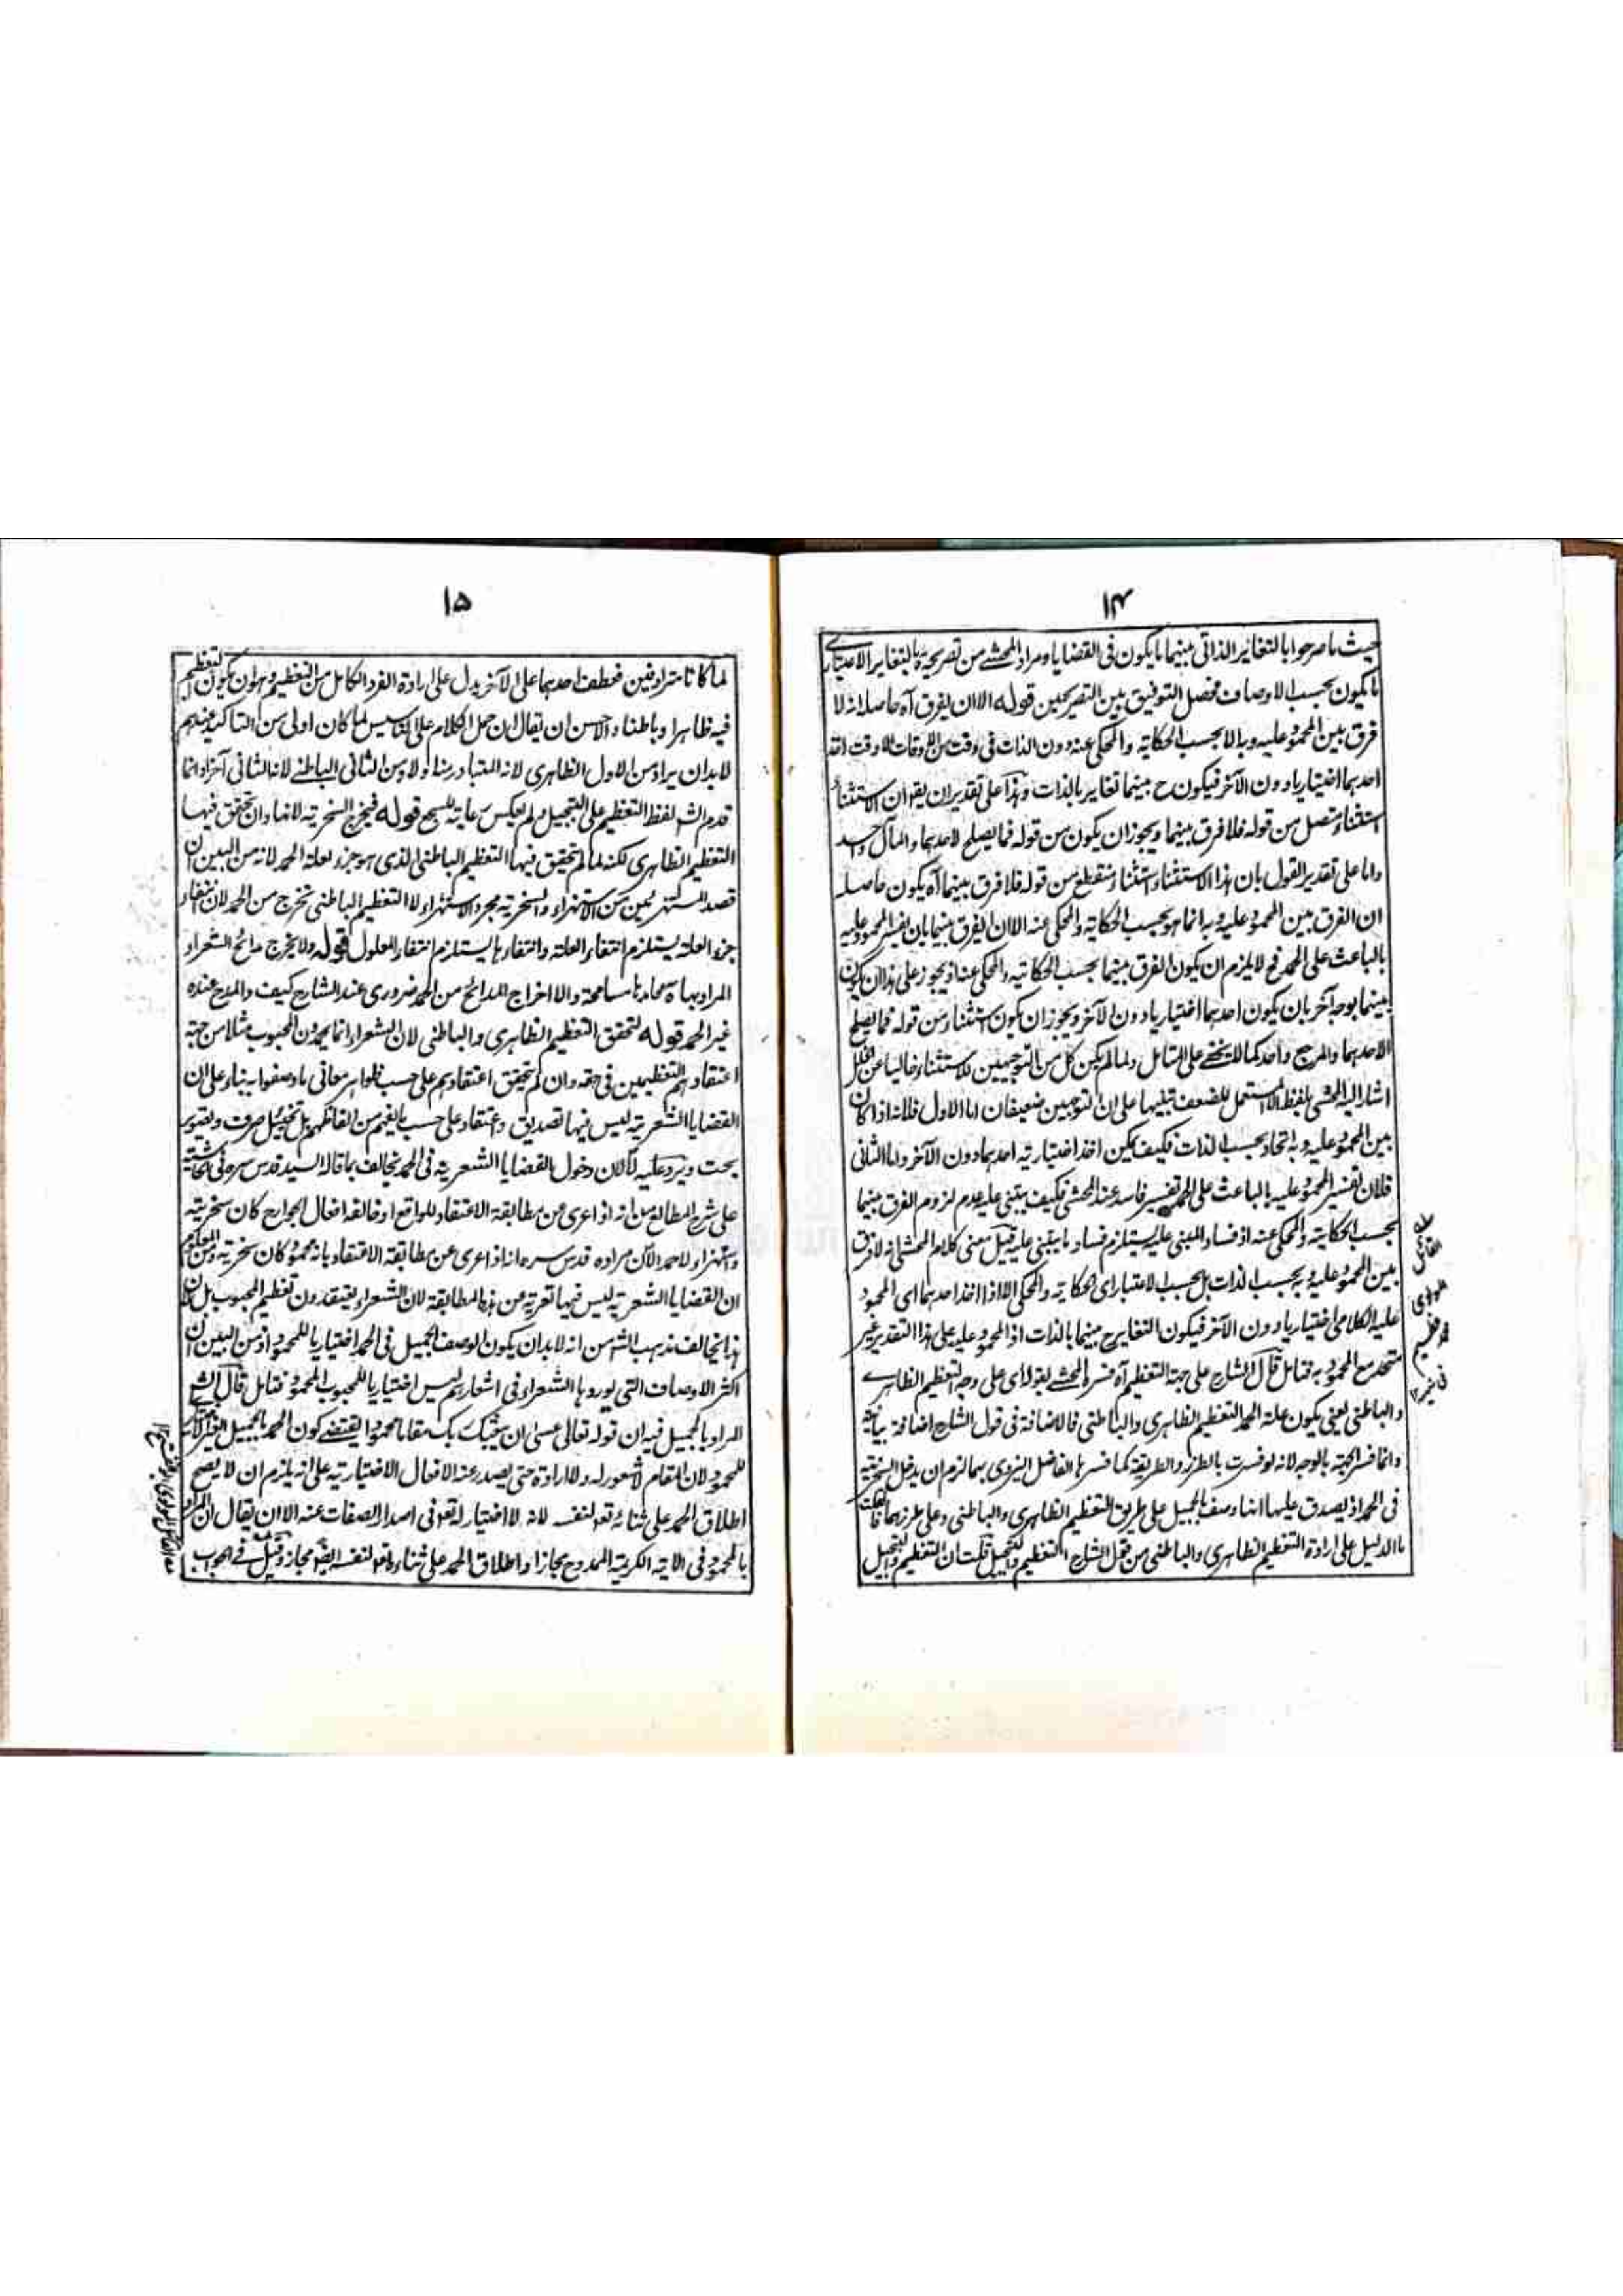 ١٤
حيث ما صرحوا بالتغاير الذاتي بينهما ما يكون في القضايا ومراد المحشي من تصريحه بالتغاير الاعتباري
ما يكون بحسب الاوصاف فحصل التوفيق بين التصريحين قوله الا ان يفرق آه حاصله انه لا
فرق بين المحمود عليه وبه الا بحسب الحكاية والمحكي عنه دون الذات في وقت من الاوقات الا وقت اخذ
احدهما اختياريا دون الآخر فيكون ح بينهما تغاير بالذات وهذا على تقدير ان يقال ان الاستثناء
استثناء متصل من قوله فلا فرق بينهما ويجوز ان يكون من قوله فما يصلح لاحدهما والمآل واحد
واما على تقدير القول بان هذا الاستثناء استثناء منقطع من قوله فلا فرق بينهما آه يكون حاصله
ان الفرق بين المحمود عليه وبه انما هو بحسب الحكاية والمحكي عنه الا ان يفرق بينهما بان يفسر المحمود عليه
بالباعث على الحمد فح لا يلزم ان يكون الفرق بينهما بحسب الحكاية والمحكي عنه اذ يجوز على هذا ان يكون
بينهما بوجه آخر بان يكون احدهما اختياريا دون الآخر ويجوز ان يكون استثناء من قوله فما يصلح
لاحدهما والمرجع واحد كما لا يخفى على المتامل ولما لم يكن كل من التوجيهين للاستثناء خاليا عن الخلل
اشار اليه المحشي بلفظ المستعمل للضعف تنبيها على ان التوجيهين ضعيفان اما الاول فلانه اذا كان
بين المحمود عليه وبه اتحاد بحسب الذات فكيف يمكن اخذ اختيارية احدهما دون الآخر واما الثاني
فلان تفسير المحمود عليه بالباعث على الحمد تفسير فاسد عند المحشي فكيف يبتني عليه عدم لزوم الفرق بينهما
بحسب الحكاية والمحكي عنه اذ فساد المبني عليه يستلزم فساد ما يبتني عليه قيل معنى كلام المحشي انه لا فرق
بين المحمود عليه وبه بحسب الذات بل بحسب الاعتبار اي الحكاية والمحكي الا اذا اخذ احدهما اي المحمود
عليه الكلامي اختياريا دون الآخر فيكون التغاير ح بينهما بالذات اذ المحمود عليه على هذا التقدير غير
متحد مع المحمود به فتامل قال الشارح على جهة التعظيم آه فسره المحشي بقوله اي على وجه التعظيم الظاهري
والباطني يعني يكون علة الحمد التعظيم الظاهري والباطني فالاضافة في قول الشارح اضافة بيانية
وانما فسر الجهة بالوجه لانه لو فسرت بالطرز والطريقة كما فسرها الفاضل اليزدي بهما لزم ان يدخل السخرية
في الحمد اذ يصدق عليها انها وصف بالجميل على طريق التعظيم الظاهري والباطني وعلى طرزهما فان قلت
ما الدليل على ارادة التعظيم الظاهري والباطني من قول الشارح التعظيم والتبجيل قلت ان التعظيم والتبجيل
القائل
مولوي
محمد عظيم
١٥
لما كانا مترادفين فعطف احدهما على الآخر يدل على ارادة الفرد الكامل من التعظيم وهو ان يكون التعظيم
فيه ظاهرا وباطنا والاحسن ان يقال ان حمل الكلام على التاسيس لما كان اولى من التاكيد عندهم
لابد ان يراد من الاول الظاهري لانه المتبادر منه اولا ومن الثاني الباطني لانه الثاني آخرا وانما
قدم الشارح لفظ التعظيم على التبجيل ولم يعكس رعاية للسجع قوله فيخرج السخرية لانها وان تحقق فيها
التعظيم الظاهري لكنه لما لم يتحقق فيها التعظيم الباطني الذي هو جزء لعلة الحمد لانه من البين ان
قصد المستهزئين من الاستهزاء والسخرية مجرد الاستهزاء لا التعظيم الباطني تخرج من الحمد لان انتفاء
جزء العلة يستلزم انتفاء العلة وانتفاءها يستلزم انتفاء المعلول قوله ولا يخرج مدائح الشعراء
المراد بها محامدها مسامحة والا اخراج المدائح من الحمد ضروري عند الشارح كيف والمدح عنده
غير الحمد قوله لتحقق التعظيم الظاهري والباطني لان الشعراء انما يحمدون المحبوب مثلا من جهة
اعتقادهم التعظيمين في حقه وان لم يتحقق اعتقادهم على حسب ظواهر معاني ما وصفوا به بناء على ان
القضايا الشعرية ليس فيها تصديق واعتقاد على حسب ما يفهم من الفاظهم بل تخييل صرف وتصوير
بحت ويرد عليه ان دخول القضايا الشعرية في الحمد يخالف بما قاله السيد قدس سره في الحاشية
على شرح المطالع من انه اذا عرى عن مطابقة الاعتقاد للواقع او خالفه افعال الجوارح كان سخرية
واستهزاء لا حمد الا ان مراده قدس سره انه اذا عرى عن مطابقة الاعتقاد بانه محمود كان سخرية ومن المعلوم
ان القضايا الشعرية ليس فيها تعرية عن هذه المطابقة لان الشعراء يعتقدون تعظيم المحبوب بل ان
هذا يخالف مذهب الشارح من انه لابد ان يكون الوصف الجميل في الحمد اختياريا للمحمود اذ من البين ان
اكثر الاوصاف التي يوردها الشعراء في اشعارهم ليس اختياريا للمحبوب المحمود فتامل قال الشارح
المراد بالجميل فيه ان قوله تعالى عسى ان يبعثك ربك مقاما محمودا يقتضي كون الحمد بالجميل الغير الاختياري
للمحمود لان المقام لا شعور له ولا ارادة حتى يصدر عنه الافعال الاختيارية على انه يلزم ان لا يصح
اطلاق الحمد على ثنائه تعالى لنفسه لانه لا اختيار له تعالى في اصدار الصفات عنه الا ان يقال ان المراد
بالمحمود في الآية الكريمة الممدوح مجازا واطلاق الحمد على ثناءه تعالى لنفسه ايضا مجاز وقيل في الجواب